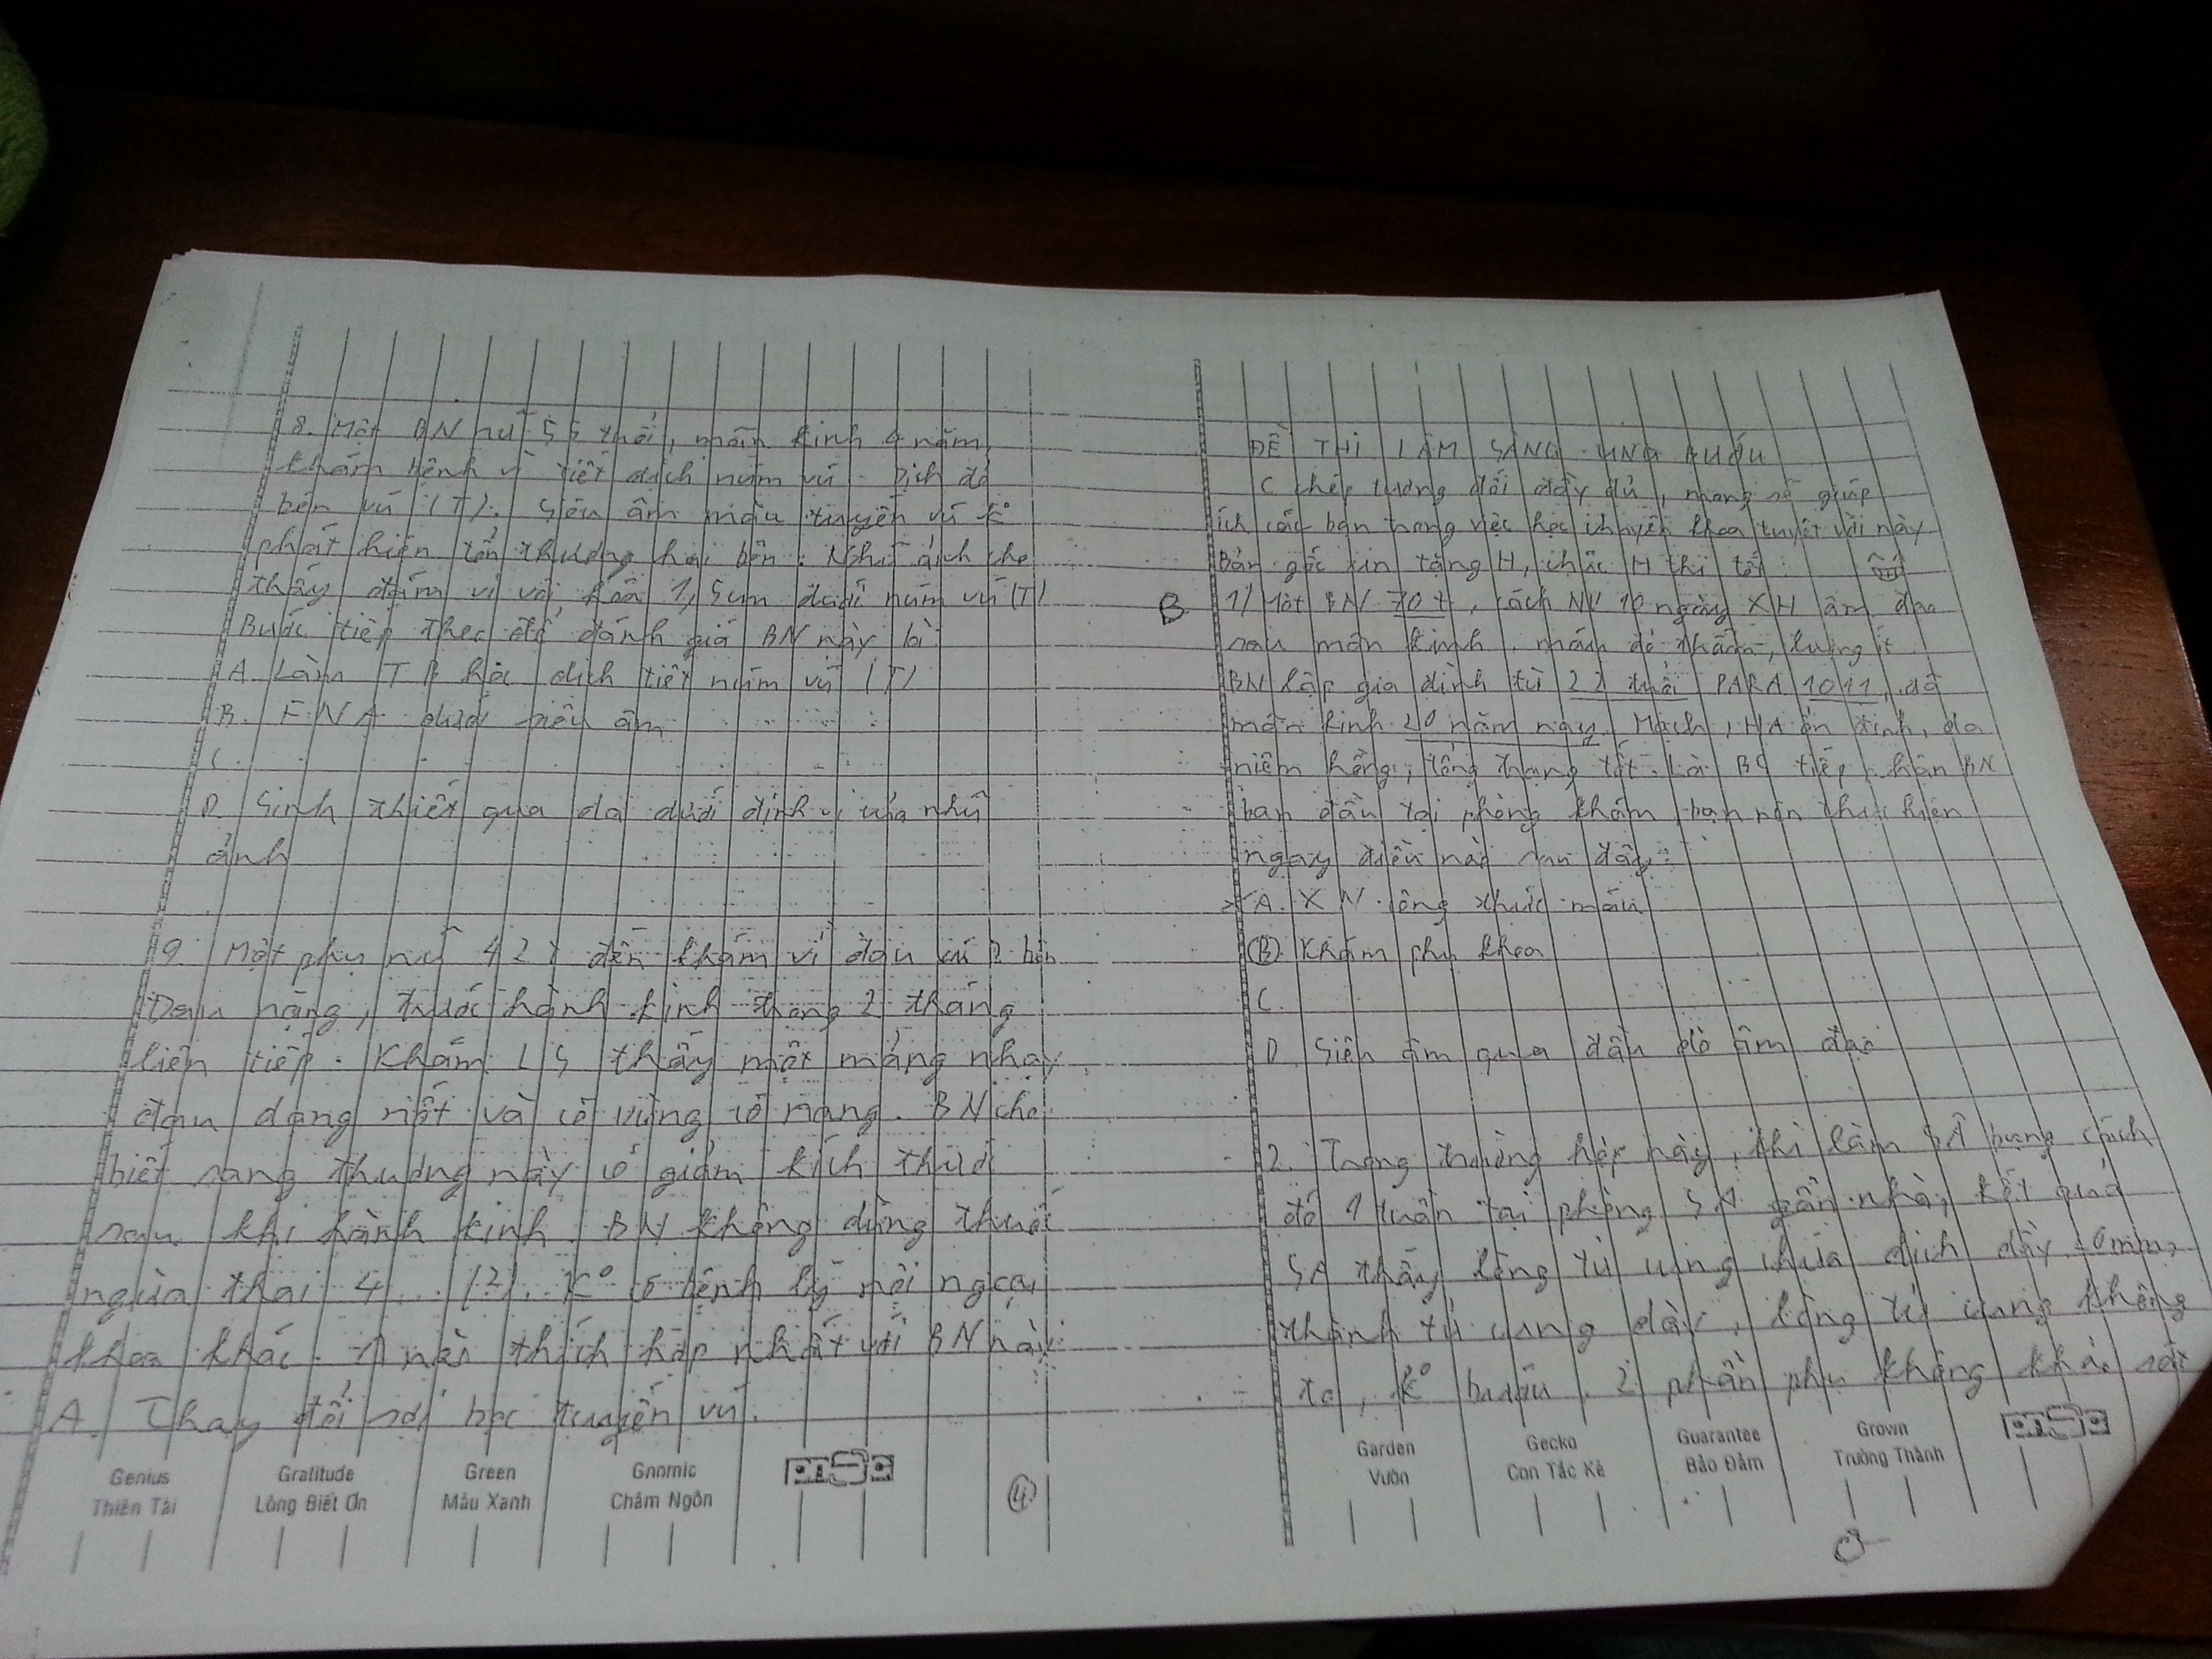 8. Một BN nữ 55 tuổi, mãn kinh 4 năm
khám bệnh vì tiết dịch núm vú. Dịch đỏ
bên vú (T). Siêu âm màu tuyến vú K°
phát hiện tổn thương hai bên. Nhũ ảnh cho
thấy đám vi vôi hóa 1,5cm dưới núm vú (T)
Bước tiếp theo để đánh giá BN này là:
A. Làm TB học dịch tiết núm vú (T)
B. FNA dưới siêu âm
C.
D. Sinh thiết qua da dưới định vị của nhũ
ảnh
9. Một phụ nữ 42t đến khám vì đau vú 2 bên
Đau nặng, trước hành kinh trong 2 tháng
liên tiếp. Khám LS thấy một mảng nhạy
đau dạng nốt và có vùng có nang. BN cho
biết sang thương này có giảm kích thước
sau khi hành kinh. BN không dùng thuốc
ngừa thai 4... (?). K° có bệnh lý nội ngoại
khoa khác. nào thích hợp nhất với BN này:
A. Thay đổi sợi bọc tuyến vú.
Genius Gratitude Green Gnomic
Thiên Tài Lòng Biết Ơn Màu Xanh Châm Ngôn
4
ĐỀ THI LÂM SÀNG UNG BƯỚU
C chép tương đối đầy đủ, mong sẽ giúp
ích các bạn trong việc học chuyên khoa tuyệt vời này
Bản gốc xin tặng H, chúc H thi tốt
B. 1) Một BN 70t, cách NV 10 ngày XH âm đạo
sau mãn kinh, máu đỏ thẫm, lượng ít
BN lập gia đình từ 22 tuổi PARA 1011, đã
mãn kinh 20 năm nay. Mạch, HA ổn định, da
niêm hồng, tổng trạng tốt. Là BS tiếp nhận BN
ban đầu tại phòng khám, bạn nên thực hiện
ngay điều nào sau đây:
A. XN công thức máu
(B) Khám phụ khoa
C.
D. Siêu âm qua đầu dò âm đạo
2. Trong trường hợp này, khi làm SA bụng cách
đó 1 tuần tại phòng SA gần nhà, kết quả
SA thấy lòng tử cung chứa dịch dày 10mm,
thành tử cung dày, lòng tử cung không
to, K° bướu, 2 phần phụ không khảo sát
Garden Gecko Guarantee Grown
Vườn Con Tắc Kè Bảo Đảm Trưởng Thành